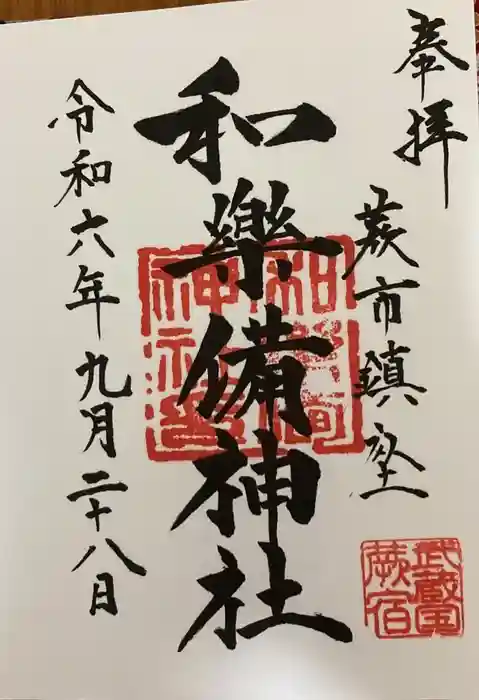 奉拝
蕨市鎮座
和樂備神社
令和六年九月二十八日
武蔵国
蕨宿